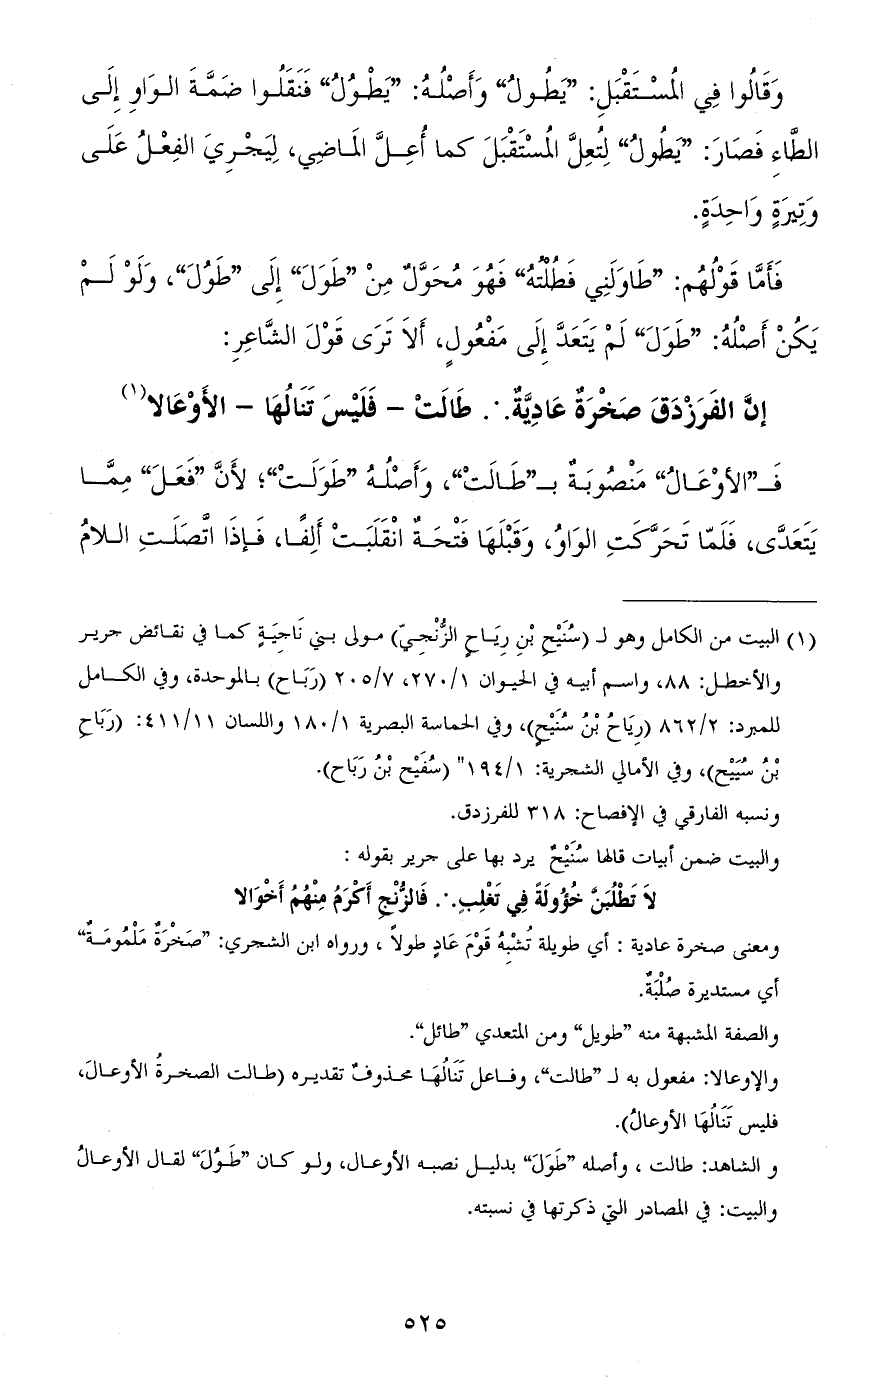 وَقَالُوا فِي الْمُسْتَقْبَلِ: "يَطُولُ" وَأَصْلُهُ: "يَطْوُلُ" فَنَقَلُوا ضَمَّةَ الوَاوِ إِلَى
الطَّاءِ فَصَارَ: "يَطُولُ" لِتُعِلَّ الْمُسْتَقْبَلَ كما أُعِلَّ الْمَاضِي، لِيَجْرِيَ الفِعْلُ عَلَى
وَتِيرَةٍ وَاحِدَةٍ.
فَأَمَّا قَوْلُهُم: "طَاوَلَنِي فَطُلْتُهُ" فَهُوَ مُحَوَّلٌ مِنْ "طَوَلَ" إِلَى "طَوُلَ"، وَلَوْ لَمْ
يَكُنْ أَصْلُهُ: "طَوَلَ" لَمْ يَتَعَدَّ إِلَى مَفْعُولٍ، أَلاَ تَرَى قَوْلَ الشَّاعِرِ:
إنَّ الفَرَزْدَقَ صَخْرَةٌ عَادِيَّةٌ ∴ طَالَتْ – فَلَيْسَ تَنَالُهَا – الأَوْعَالا(١)
فَـ"الأَوْعَالُ" مَنْصُوبَةٌ بـ"طَالَتْ"، وَأَصْلُهُ "طَوَلَتْ"؛ لأَنَّ "فَعَلَ" مِمَّا
يَتَعَدَّى، فَلَمّا تَحَرَّكَتِ الوَاوُ، وَقَبْلَهَا فَتْحَةٌ انْقَلَبَتْ أَلِفًا، فَإِذَا اتَّصَلَتِ اللامُ
(١) البيت من الكامل وهو لـ (سُنَيْحِ بْنِ رِيَاحٍ الزُّنْجِيّ) مولى بني نَاجِيَةٍ كما في نقائض جرير
والأخطل: ٨٨، واسم أبيه في الحيوان ٢٧٠/١، ٢٠٥/٧ (رَبَاح) بالموحدة، وفي الكامل
للمبرد: ٨٦٢/٢ (رِيَاحُ بْنُ سُنَيْحٍ)، وفي الحماسة البصرية ١٨٠/١ واللسان ٤١١/١١: (رَبَاح
بْنُ سُبَيْح)، وفي الأمالي الشجرية: ١٩٤/١" (سُفَيْح بْنُ رَبَاح).
ونسبه الفارقي في الإفصاح: ٣١٨ للفرزدق.
والبيت ضمن أبيات قالها سُنَيْحٌ يرد بها على جرير بقوله :
لاَ تَطْلُبَنَّ خُؤُولَةً فِي تَغْلِبٍ ∴ فَالزُّنْجِ أَكْرَمُ مِنْهُمُ أَخْوَالا
ومعنى صخرة عادية : أي طويلة تُشْبِهُ قَوْمَ عَادٍ طولاً ، ورواه ابن الشجري: "صَخْرَةٌ مَلْمُومَةٌ"
أي مستديرة صُلْبَةٌ.
والصفة المشبهة منه "طويل" ومن المتعدي "طائل".
والإوعالا: مفعول به لـ "طالت"، وفاعل تَنَالُهَا محذوفٌ تقديره (طالت الصخرةُ الأوعالَ،
فليس تَنَالُهَا الأوعالُ).
و الشاهد: طالت ، وأصله "طَوَلَ" بدليل نصبه الأوعال، ولو كان "طَوُلَ" لقال الأوعالُ
والبيت: في المصادر التي ذكرتها في نسبته.
٥٢٥